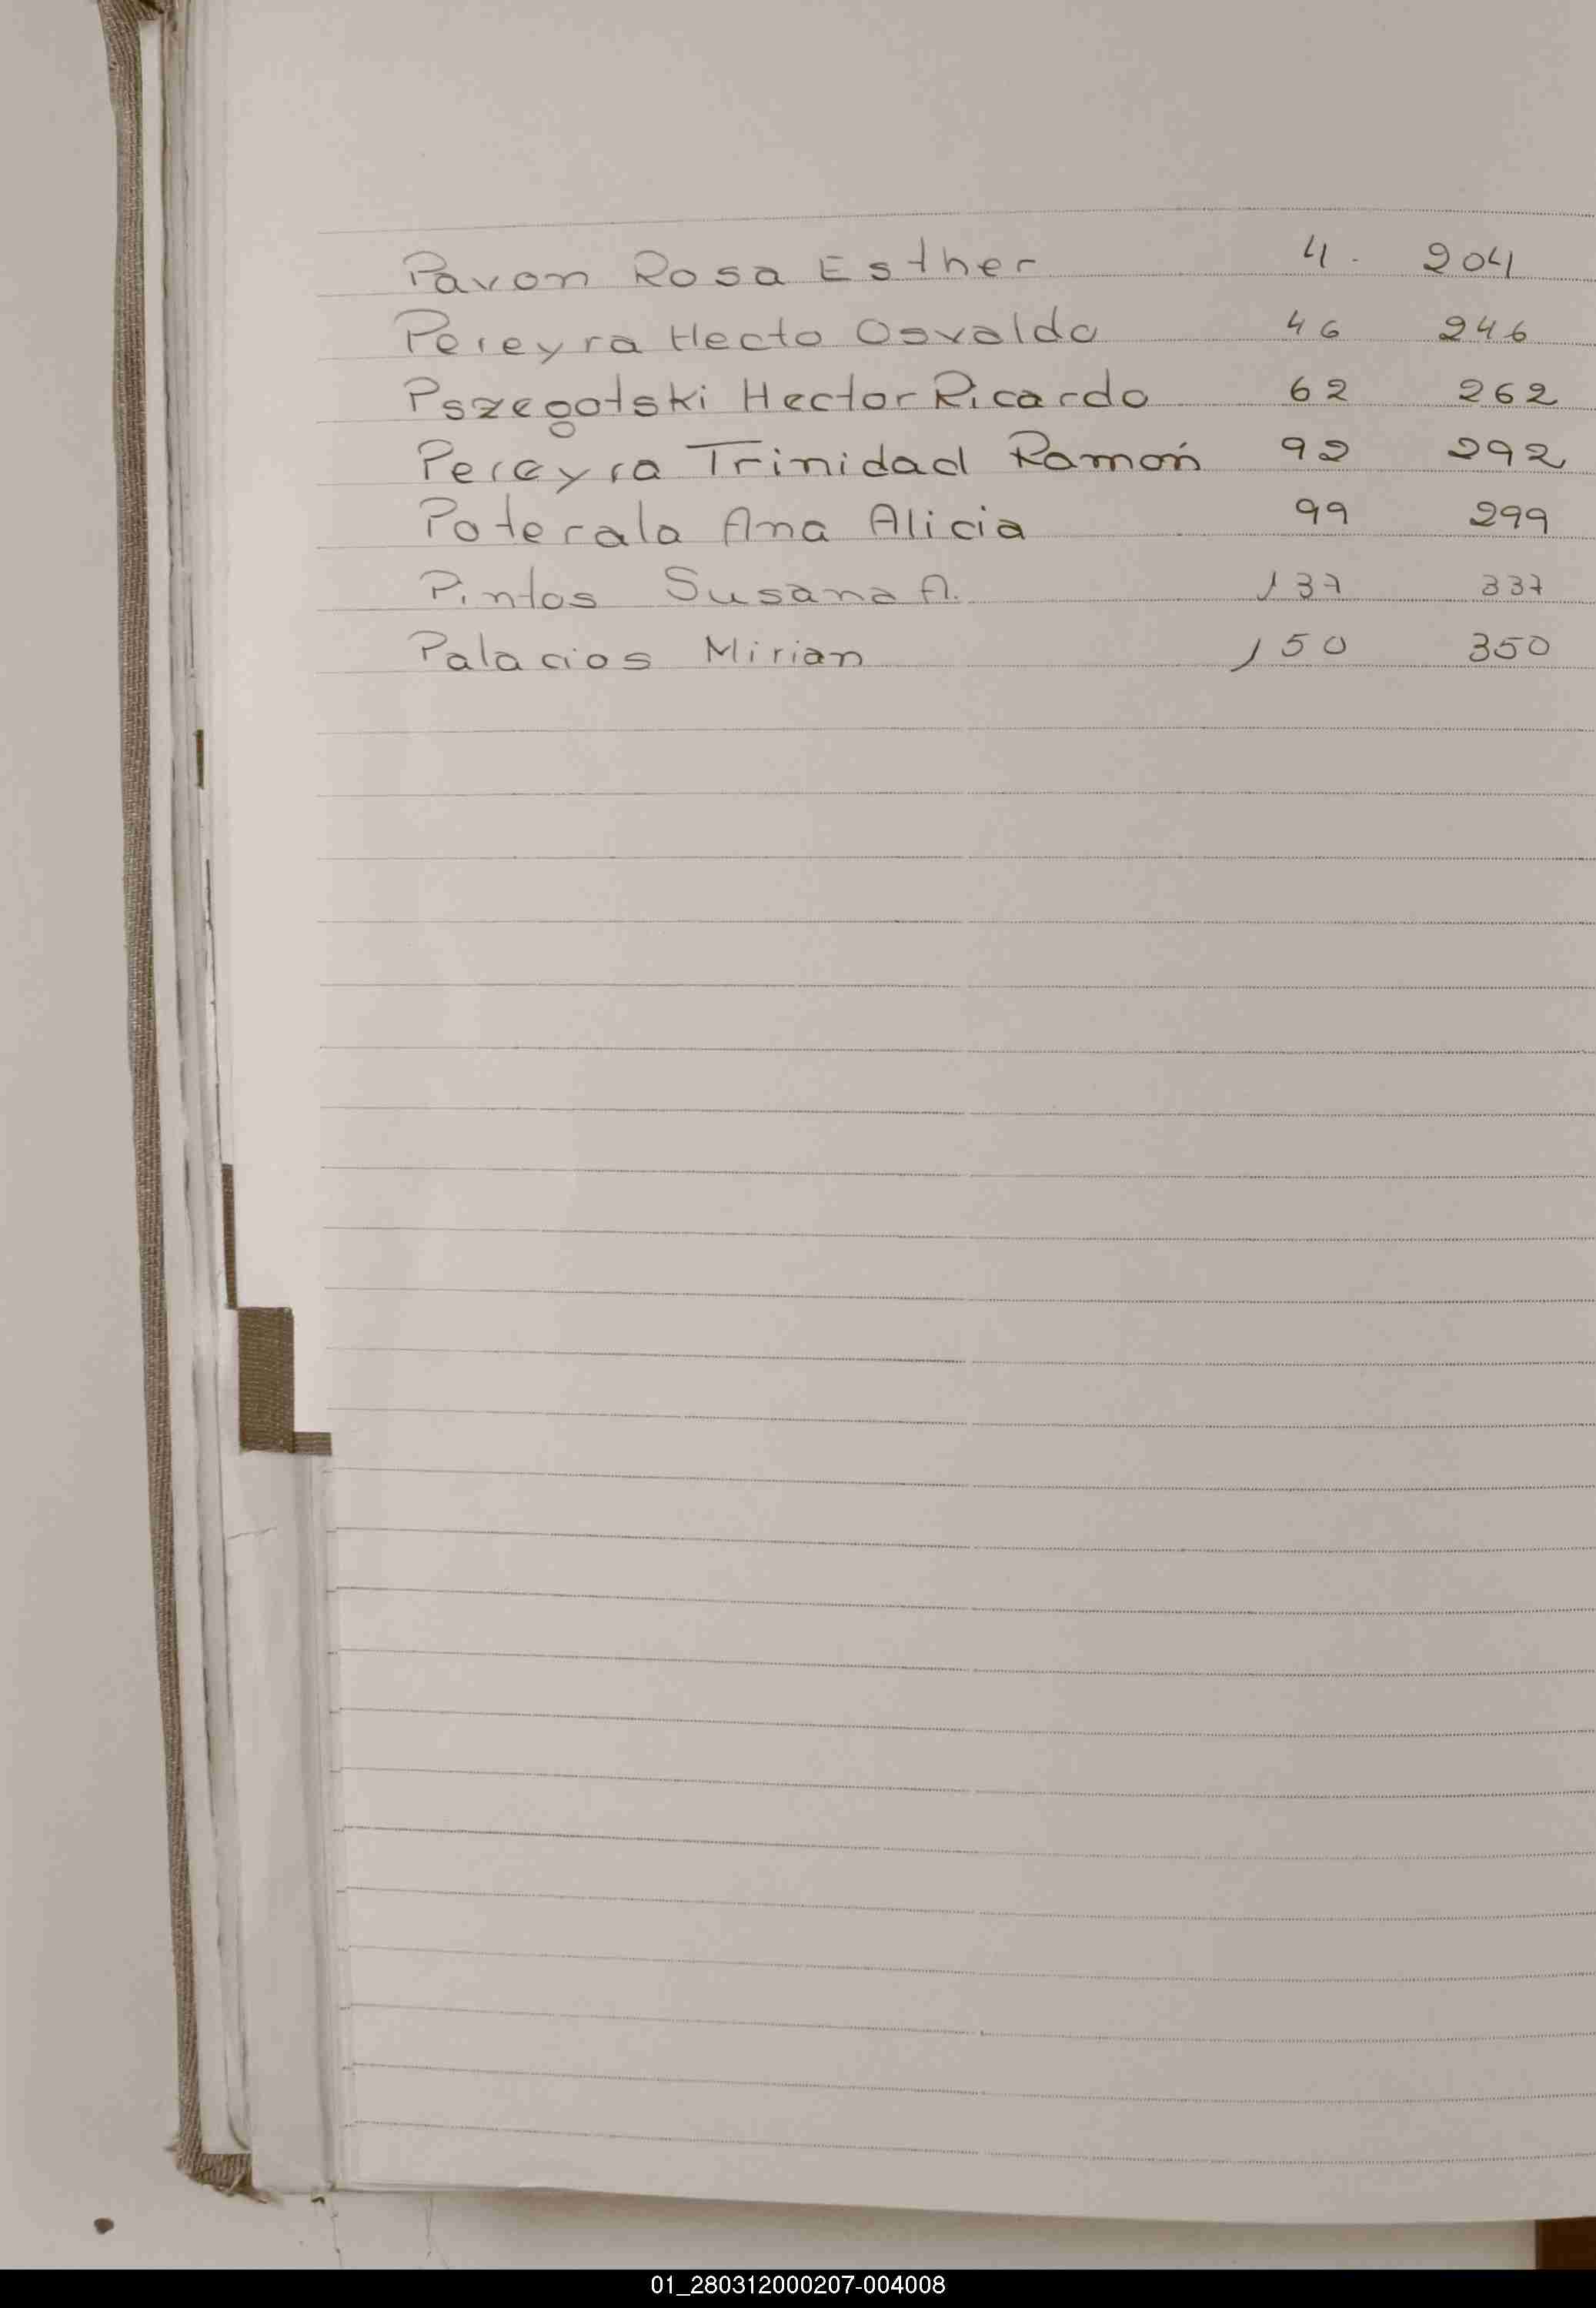 Pavon Rosa Esther 4. 204
Pereyra Hecto Osvaldo 46 246
Pszegotski Hector Ricardo 62 262
Pereyra Trinidad Ramón 92 292
Poterala Ana Alicia 99 299
Pintos Susana A. 137 337
Palacios Mirian 150 350
01_280312000207-004008